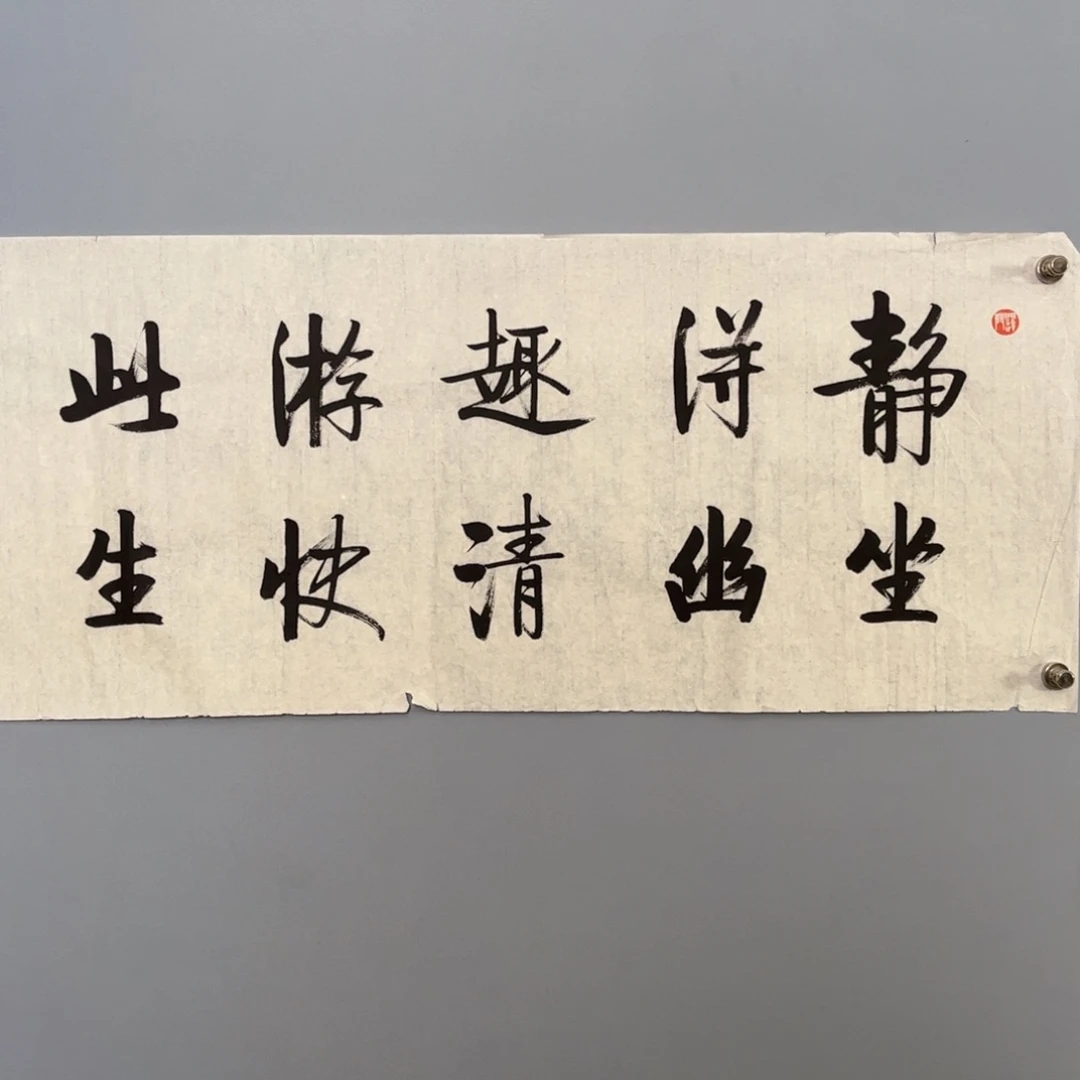 静坐
得幽
趣清
游快
此生